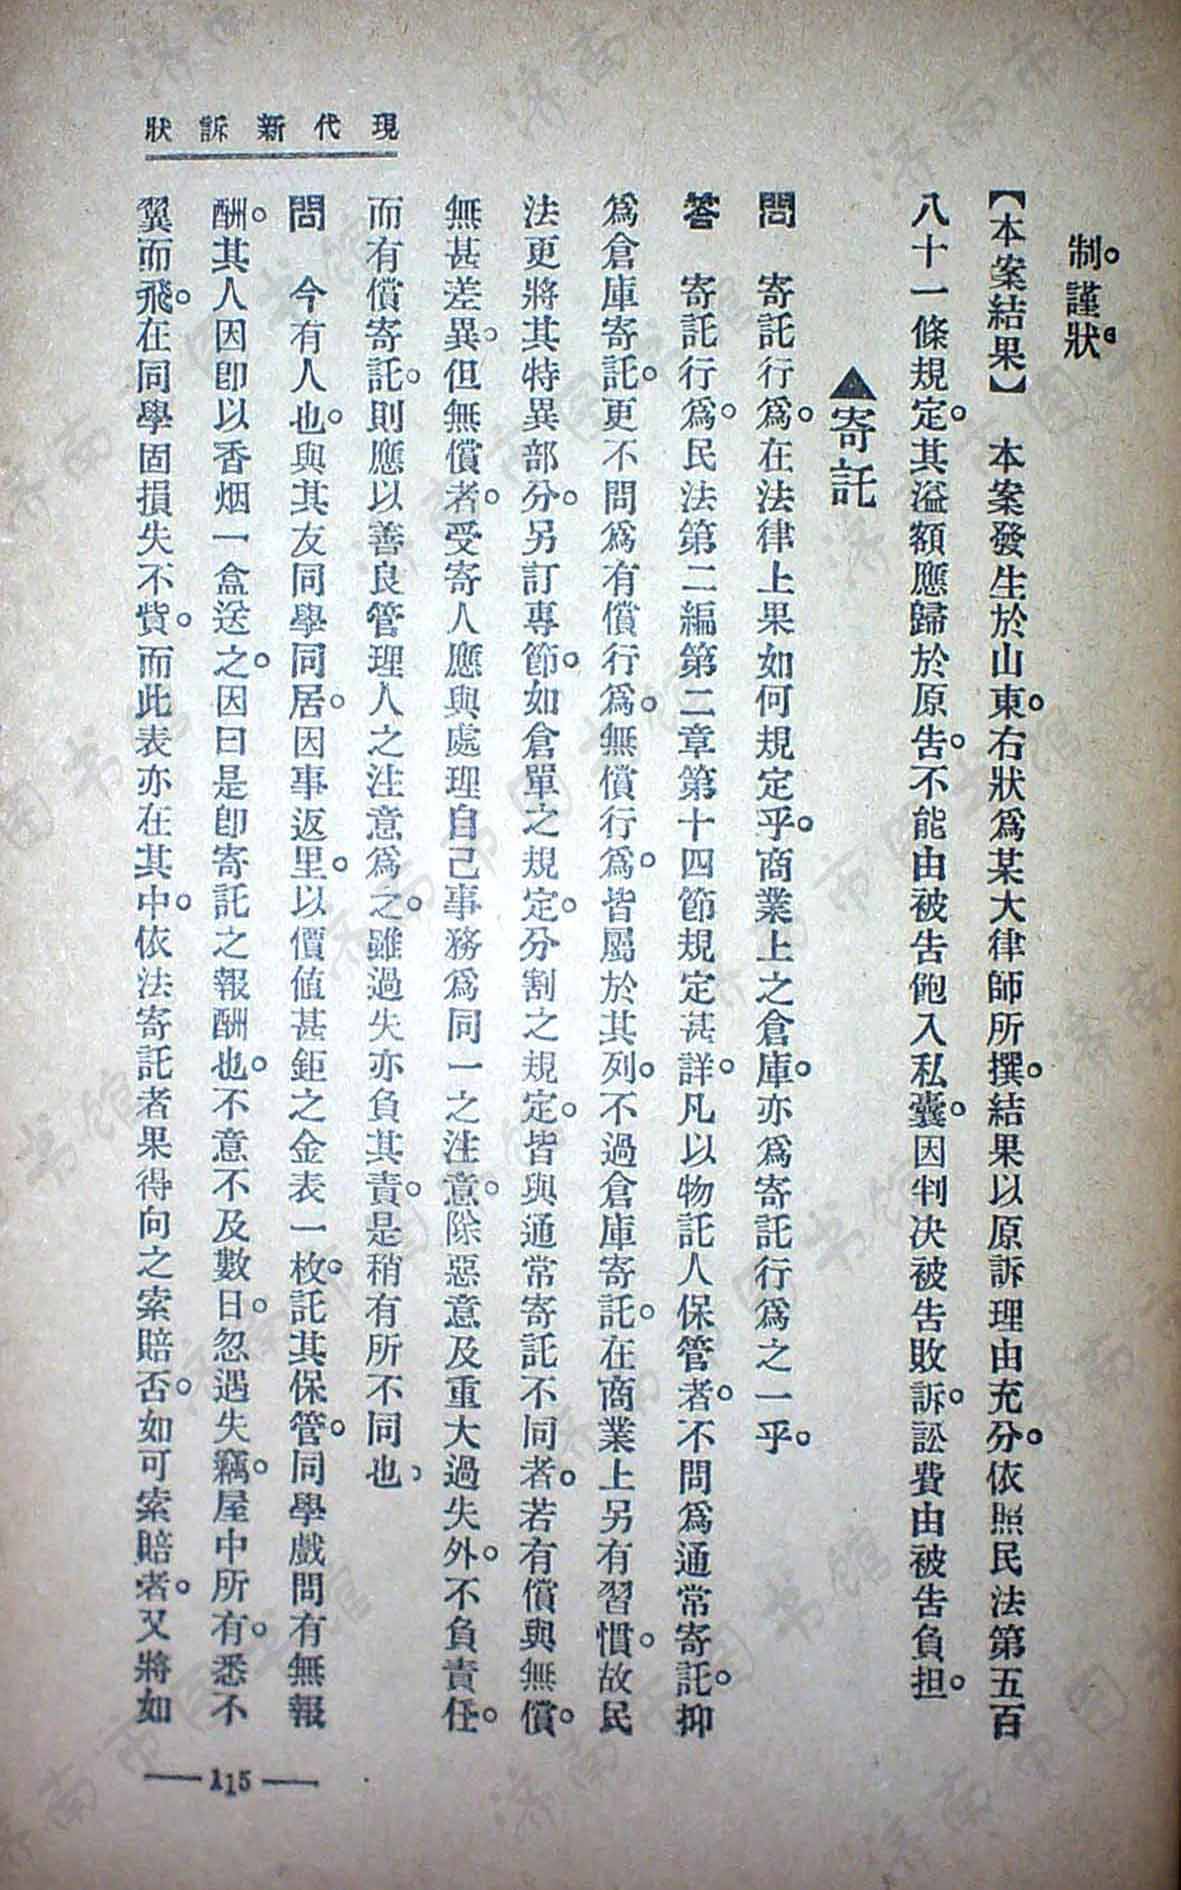 現代新訴狀
制。謹狀。
【本案結果】　本案發生於山東。右狀爲某大律師所撰。結果以原訴理由充分。依照民法第五百
八十一條規定。其溢額應歸於原告。不能由被告飽入私囊。因判决被告敗訴。訟費由被告負担。
▲寄託
問　寄託行爲。在法律上果如何規定乎。商業上之倉庫。亦爲寄託行爲之一乎。
答　寄託行爲。民法第二編第二章第十四節規定甚詳。凡以物託人保管者。不問爲通常寄託。抑
爲倉庫寄託。更不問爲有償行爲。無償行爲。皆屬於其列。不過倉庫寄託。在商業上另有習慣。故民
法更將其特異部分。另訂專節。如倉單之規定。分割之規定。皆與通常寄託不同者。若有償與無償。
無甚差異。但無償者。受寄人應與處理自己事務爲同一之注意。除惡意及重大過失外。不負責任。
而有償寄託。則應以善良管理人之注意爲之。雖過失亦負其責。是稍有所不同也、
問　今有人也。與其友同學同居。因事返里。以價値甚鉅之金表一枚。託其保管。同學戲問有無報
酬。其人因卽以香烟一盒送之。因曰是卽寄託之報酬也。不意不及數日。忽遇失竊。屋中所有。悉不
翼而飛。在同學固損失不貲。而此表亦在其中。依法寄託者果得向之索賠否。如可索賠者。又將如
115
济南市图书馆